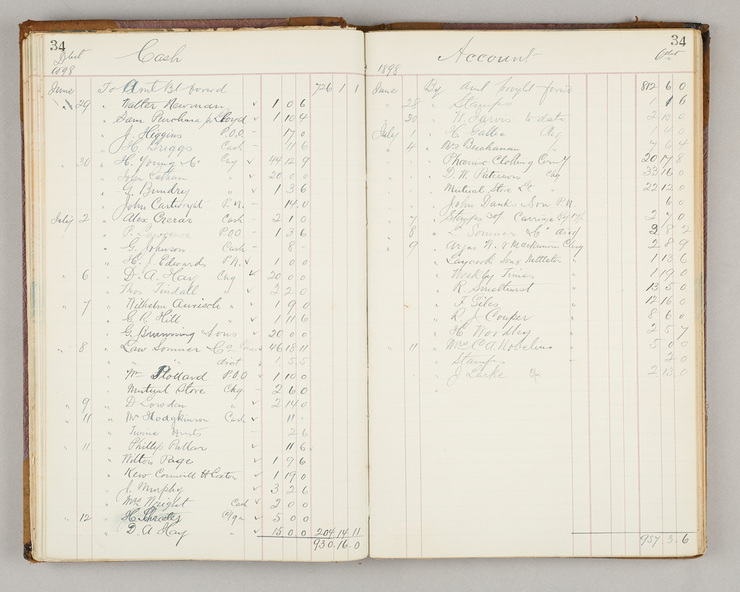 34
Debt
Cash
1898
June To Amt Bt forwd 726 1 1
29 " Walter Newman 1 0 6
" Sam Purchase 1 10 4
" J. Higgins P.O.O. 17 0
" H. Briggs Cash 11 6
30 " H. Young & Co Chq 44 12 9
" 20 0 0
" G. Bundrey " 1 3 6
" John Cartwright P.N. 14 0
July 2 " Alex Crerar Cash 2 1 0
" P. P.O.O 1 3 6
" G. Johnson Cash 8 -
" H. J. Edwards P.N. 1 0 0
6 " D. A. Hay Chq 20 0 0
" Thos Tindall " 2 2 0
7 " Wilhelm " 1 9 0
" C. R. Hill " 1 11 6
" G. Brunning & Sons " 20 0 0
8 " Law Somner & Co 46 18 11
" " disct 5 5
" Wm Pollard P.O.O 1 10 0
" Mutual Store Chq 2 6 0
9 " D Lowden " 2 14 0
11 " Mr Hodgkinson Cash 11 -
" Twine 2 6
11 " Phillip 11 6
" Wilton Page 1 9 6
" Kew 1 19 0
" J. Murphy 3 2 6
" Mrs Wright Cash 2 0 0
12 " H. Chqs 5 0 0
" D. A. Hay " 15 0 0 204 14 11
930 16 0
34
Account
Cr
1898
June By Amt brought forwd 812 6 0
28 " Stamps 1 1 6
30 " W. Jarvis to date 2 10 0
July 1 " H. Chq 1 4 0
4 " Ws Buchanan " 7 0 4
" Clothing Comy 20 17 8
" D. W. Paterson Chq 33 16 0
" Mutual Store Ld " 22 12 0
" John Danks & Son P.N. 6 0
7 " Stamps & Carriage 2 7 0
8 " " Somner & Co disct 2 8 2
9 " Argus W. & Mackinnon Chq 2 8 9
" Laycock Son & Nettleton 1 13 6
" Weekly Times 1 19 0
" R. Smelhurst 13 5 0
" T. Giles 12 16 0
" R. J. Couper 8 6 0
" H. Woodley 2 5 7
11 " Mrs C. A. 5 0 0
" Stamps 2 0
" J. 2 13 0
957 3 6